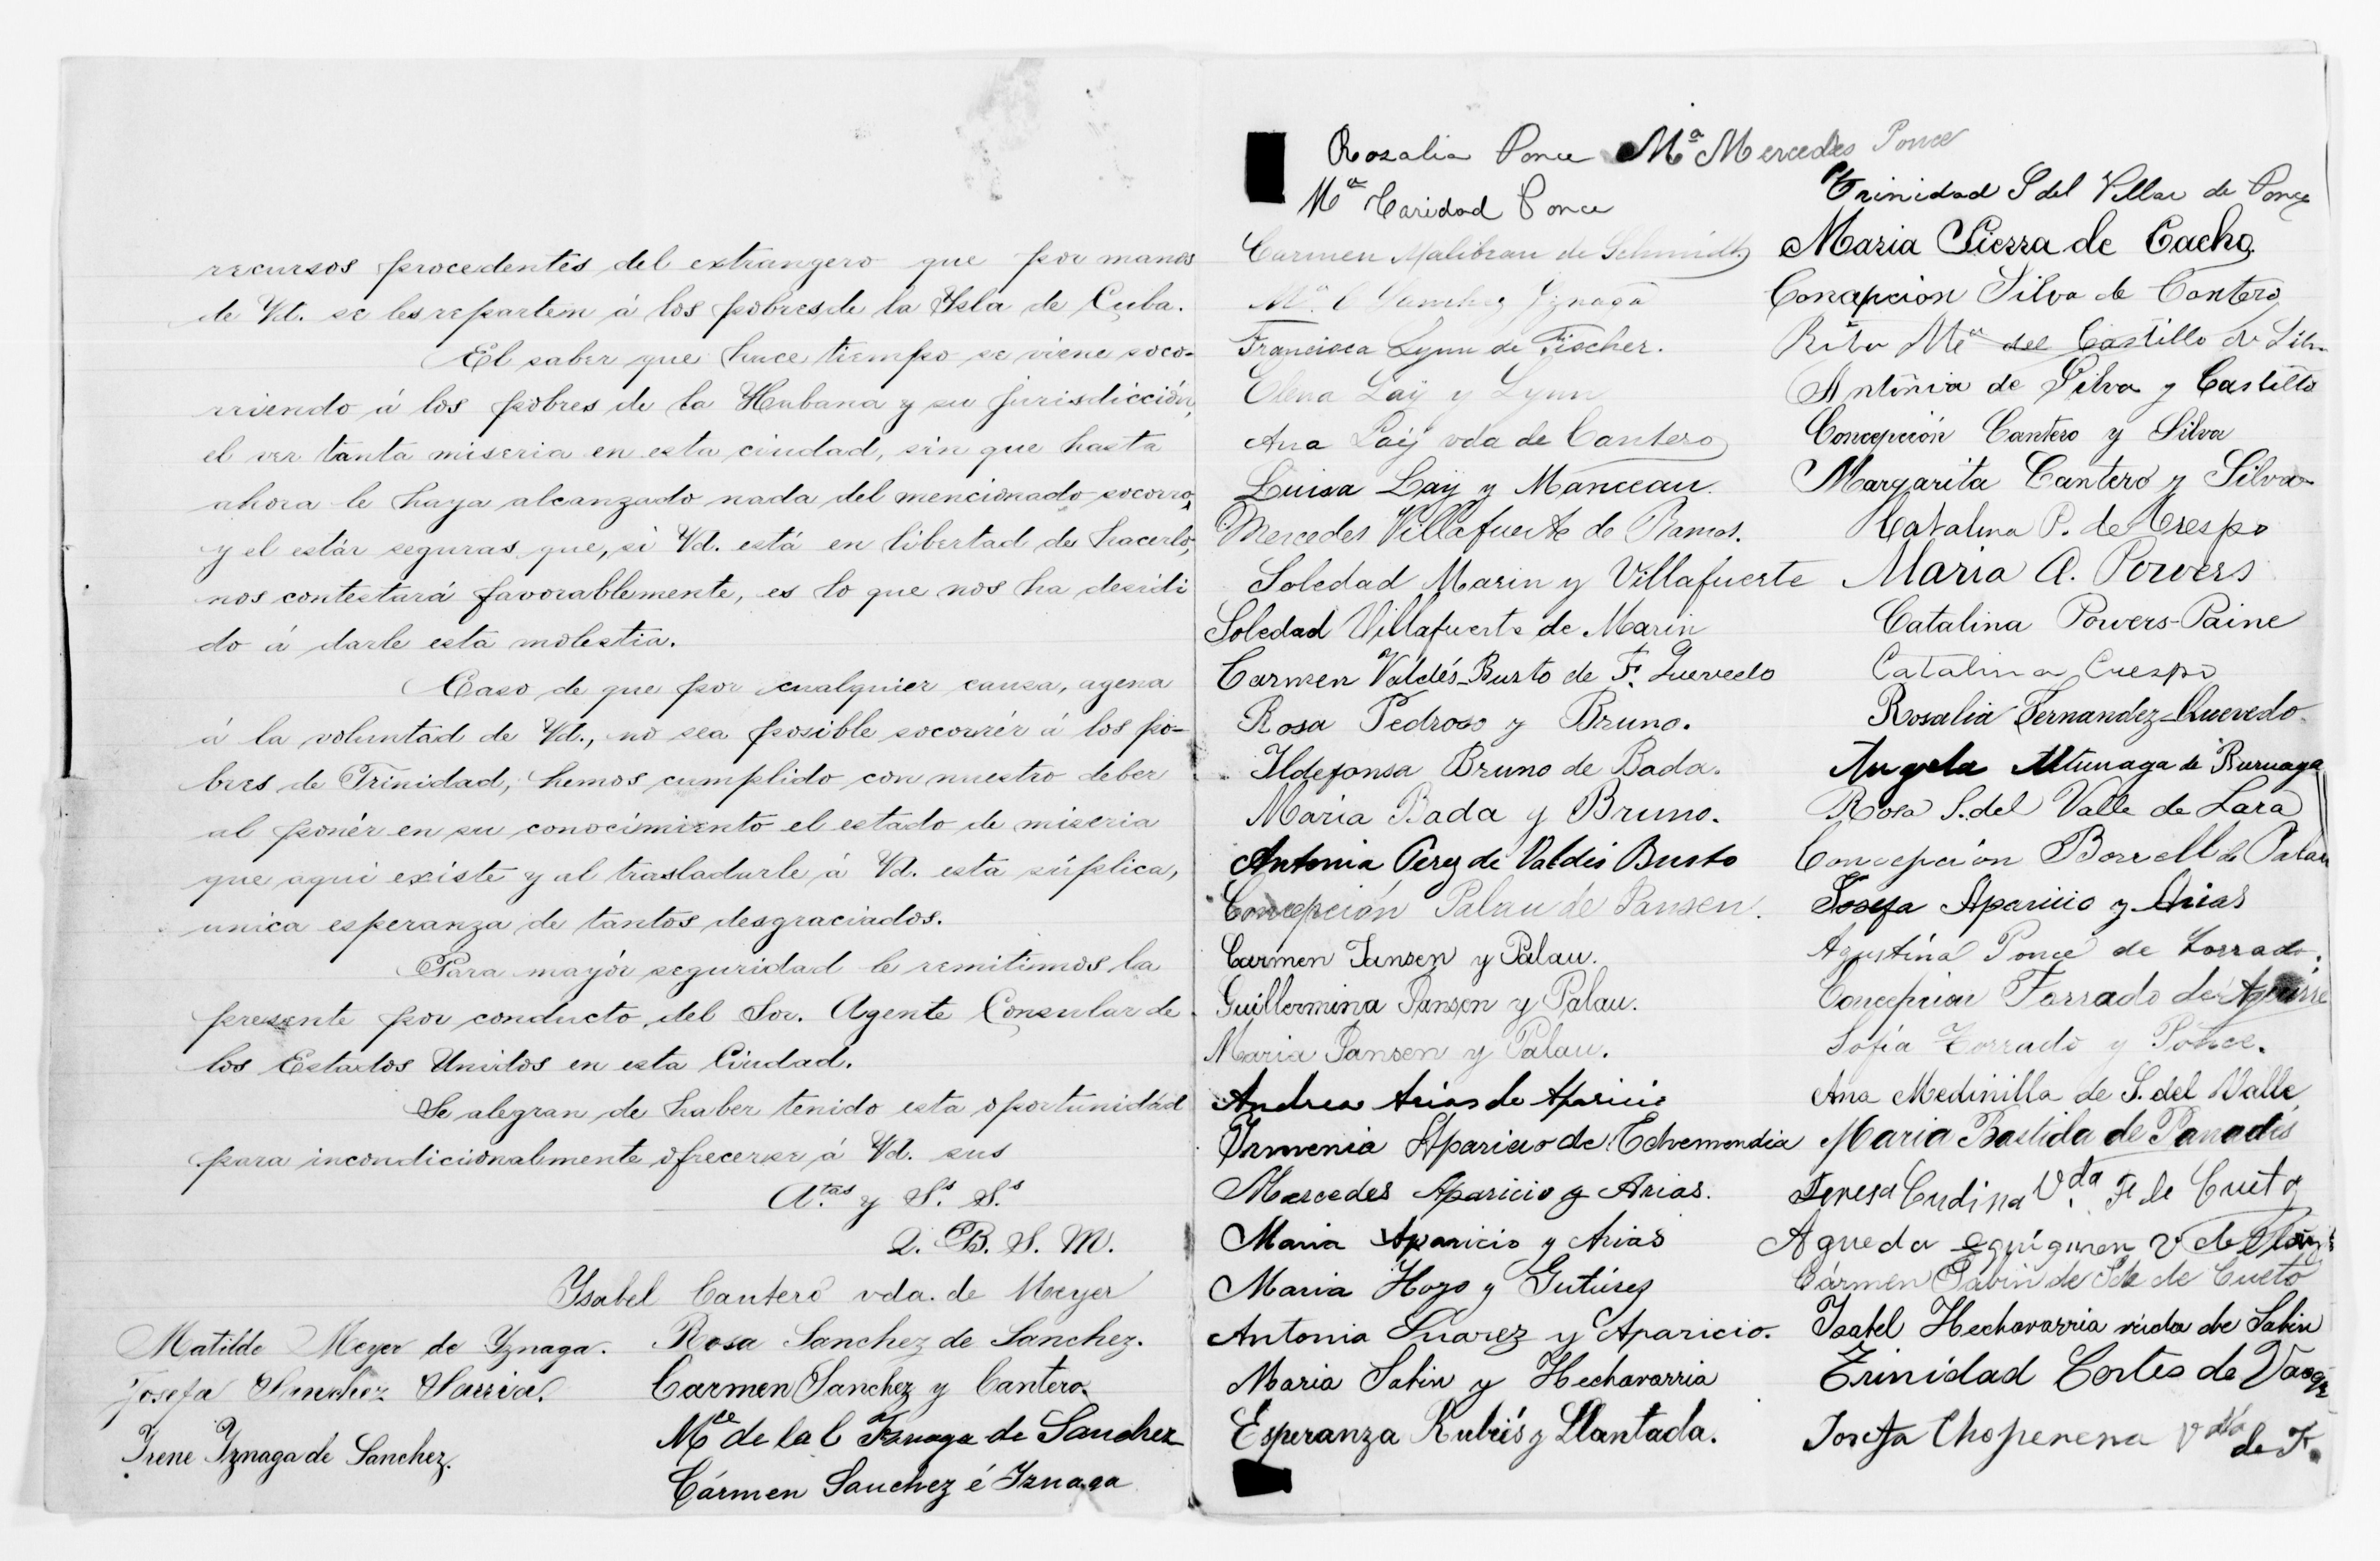 recursos procedentes del extrangero que por manos
de Vd. se les reparten á los pobres de la Ysla de Cuba.
El saber que hace tiempo se viene soco-
rriendo á los pobres de la Habana y su jurisdicción,
el ver tanta miseria en esta ciudad, sin que hasta
ahora le haya alcanzado nada del mencionado socorro,
y el estár seguras que, si Vd. está en libertad de hacerlo,
nos contestará favorablemente, es lo que nos ha decidi
do á darle esta molestia.
Caso de que por cualquier causa, agena
á la voluntad de Vd., no sea posible socorrér á los po-
bres de Trinidad, hemos cumplido con nuestro deber
al ponér en su conocimiento el estado de miseria
que aqui existe y al trasladarle á Vd. esta súplica,
unica esperanza de tantos desgraciados.
Para mayór seguridad le remitimos la
presente por conducto del Sor. Agente Consular de
los Estados Unidos en esta Ciudad.
Se alegran de haber tenido esta oportunidad
para incondicionalmente ofrecerse á Vd. sus
A.tas y S.s S.s
Q. B. S. M.
Ysabel Cantero vda. de Meyer
Matilde Meyer de Yznaga. Rosa Sanchez de Sanchez.
Josefa Sanchez Sarria. Carmen Sanchez y Cantero.
Irene Yznaga de Sanchez. de la C Yznaga de Sanchez
Cármen Sanchez é Iznaga
Rosalia Ponce Mª Mercedes Ponce
Mª Caridad Ponce
Carmen Malibran de Schmidt.
Mª C Sanchez Yznaga
Francisca Lynn de Fischer.
Elena Laÿ y Lynn
Ana Laÿ vda de Cantero
Luisa Laÿ y Manceau.
Mercedes Villafuerte de Ramos.
Soledad Marin y Villafuerte
Soledad Villafuerte de Marin
Carmen Valdés-Busto de F. Quevedo
Rosa Pedroso y Bruno.
Ildefonsa Bruno de Bada.
Maria Bada y Bruno.
Antonia Perez de Valdés Busto
Concepción Palau de Pansen.
Carmen Jansen y Palau.
Guillermina Jansen y Palau.
Maria Jansen y Palau.
Andrea Arias de Aparicio
Irmenia Aparicio de Echemendia
Mercedes Aparicio y Arias.
Maria Aparicio y Arias
Maria Hoyo y Gutiérez
Antonia Suarez y Aparicio.
Maria Sabin y Hechavarria
Esperanza Rubiés y Llantada.
Trinidad S del Villar de Ponce
Maria Sierra de Cacho.
Concepcion Silva de Cantero
Rita Mª del Castillo de
Antonia de Silva y Castillo
Concepción Cantero y Silva
Margarita Cantero y Silva
Catalina P. de Crespo
Maria A. Powers
Catalina Powers-Paine
Catalina Crespo
Rosalia Fernandez-Quevedo.
Angela Altunaga de Buruaga
Rosa S. del Valle de Lara
Concepcion Borrell de Palau
Josefa Aparicio y Arias
Agustina Ponce de Torrado.
Concepcion Torrado de
Sofia Torrado y Ponce.
Ana Medinilla de S. del Valle
Maria Bastida de Panadés
Teresa Cudina Vda F de Cueto
Agueda v de
Cármen Sabin de de Cueto
Isabel Hechavarria viuda de Sabin
Trinidad Cortes de
Josefa Choperena Vda de F.